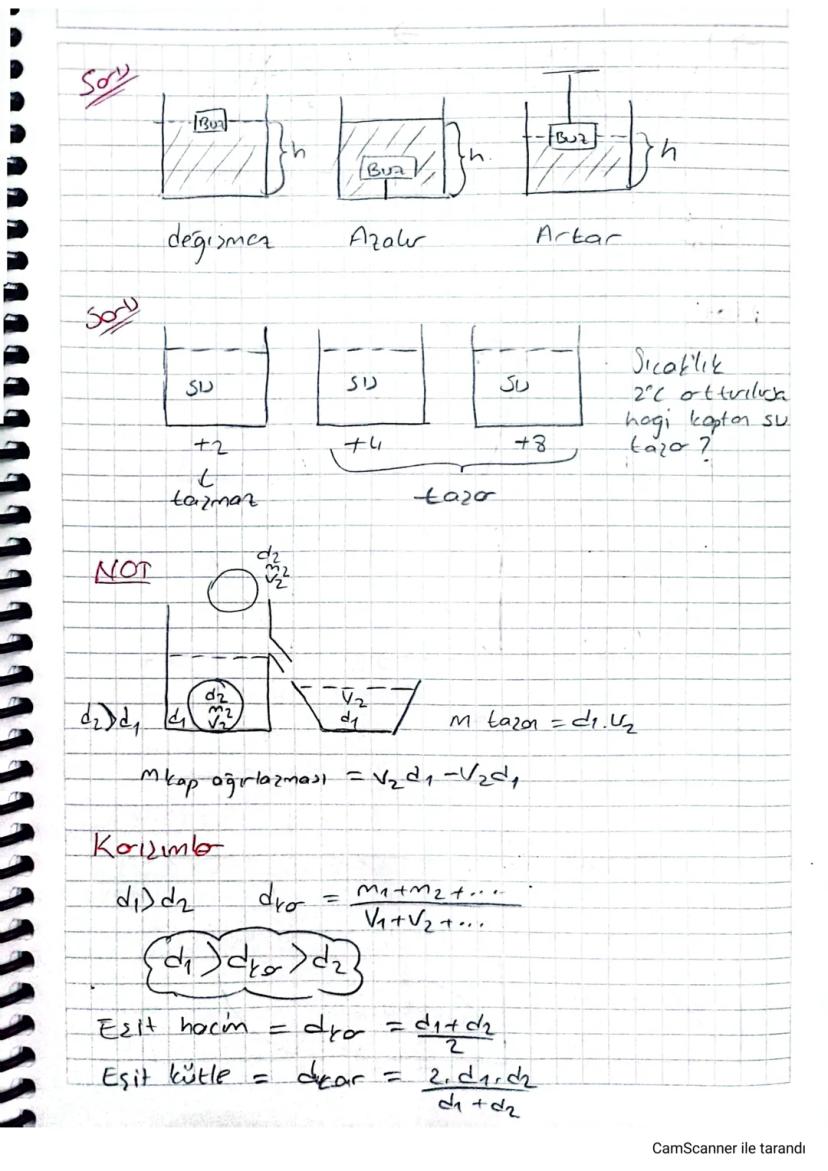 Soru
Buz
h
Buz
h
Buz
h
değişmez
Azalır
Artar
Soru
su
su
su
Sıcaklık
2°C arttırılırsa
hangi kaptan su
taşar?
+2
+4
+8
taşmaz
taşar
NOT
d2
m2
V2
d2
m2
V2
d2>d1
d1
V2
d1
m taşan = d1.V2
Mkap ağırlaşması = V2d1-V2d1
Karışımlar
d1>d2 dkar = m1+m2+.... / V1+V2+...
d1>dkar>d2
Eşit hacim = dkar = d1+d2 / 2
Eşit kütle = dkar = 2.d1.d2 / d1+d2
CamScanner ile tarandı